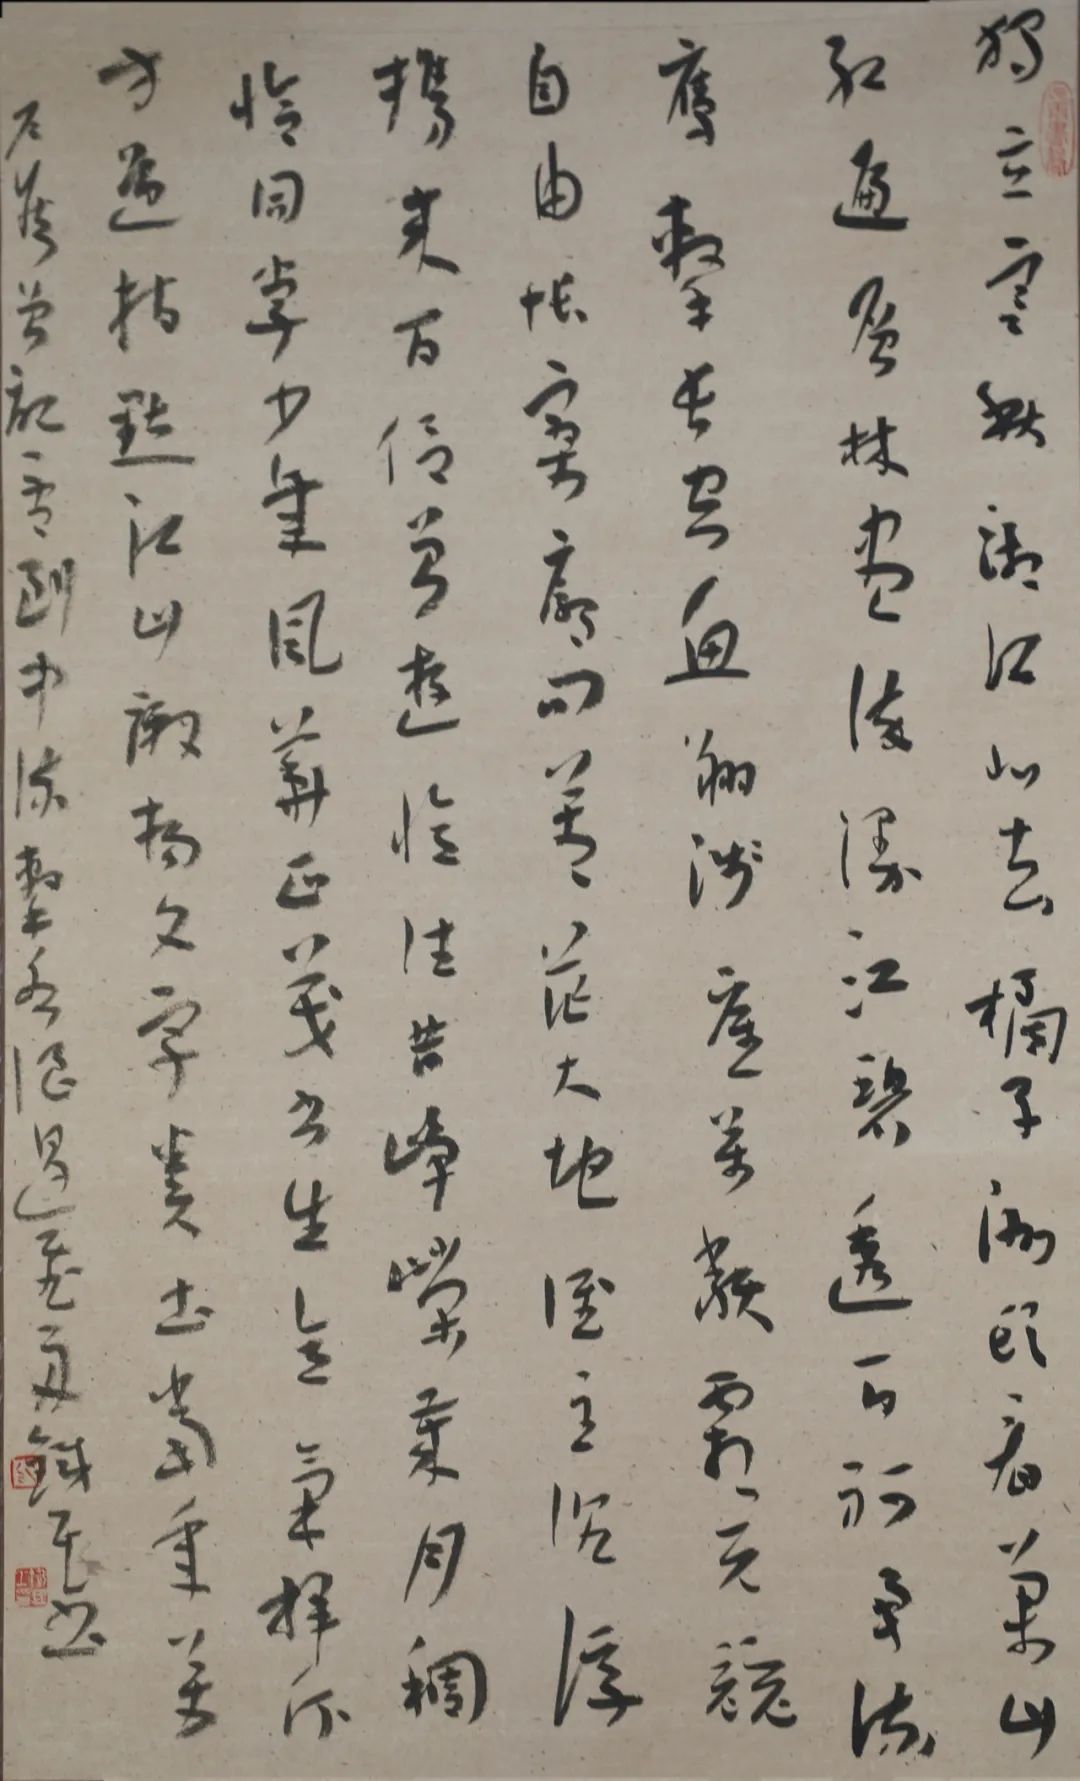 獨立寒秋湘江北去橘子洲頭看萬山
紅遍層林盡染漫江碧透百舸爭流
鷹擊長空魚翔淺底萬類霜天競
自由悵寥廓問蒼茫大地誰主沉浮
攜來百侶曾遊憶往昔崢嶸歲月稠
恰同學少年風華正茂書生意氣揮斥
方遒指點江山激揚文字糞土當年萬
戶侯曾記否到中流擊水浪遏飛舟鐵民書